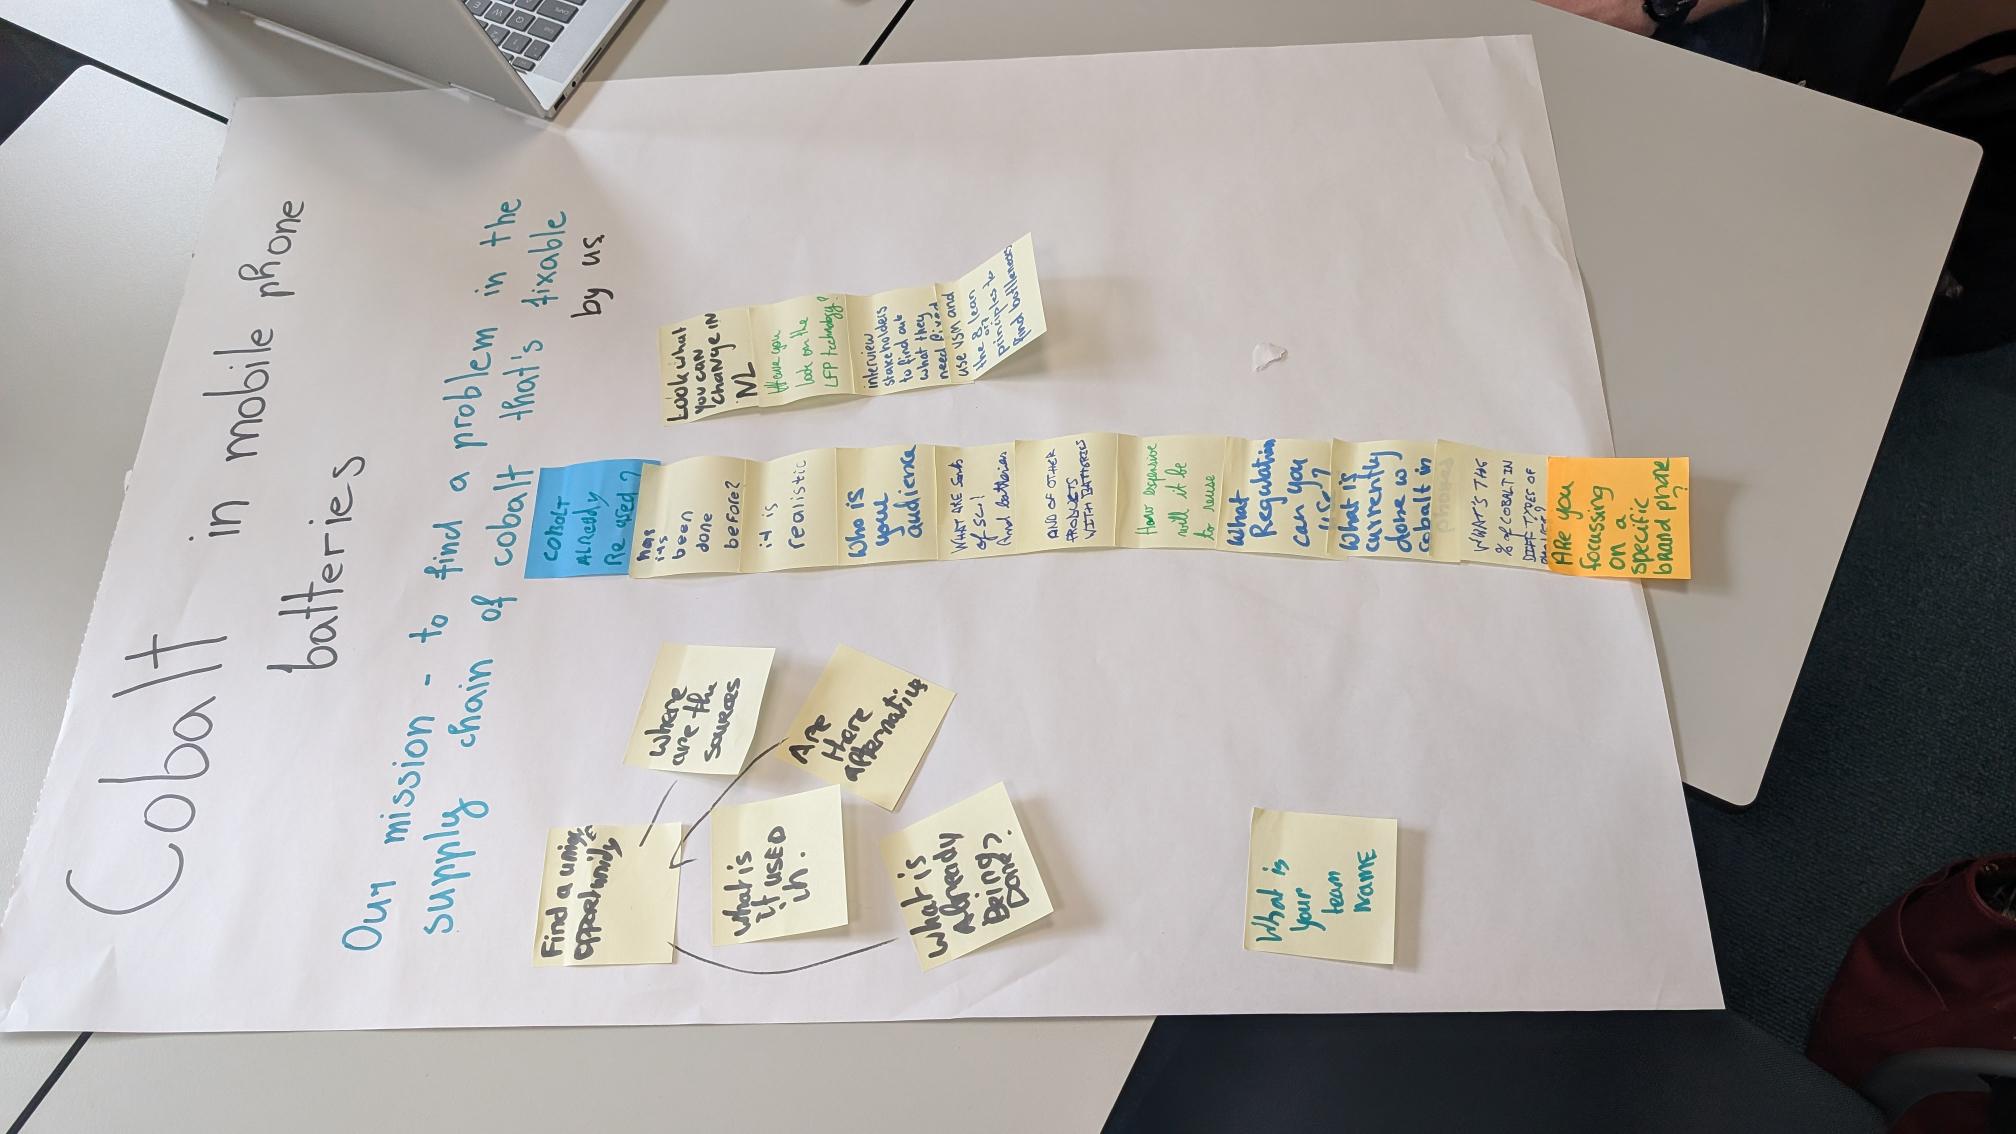 Cobalt in mobile phone
batteries
Our mission - to find a problem in the
supply chain of cobalt that's fixable
by us
Find a uniqe
opportunidy
Where
are the
sources
What is
it USED
in.
Are
there
alternative
What is
Already
Being
Done?
What is
your
team
NAME
COBOLT
ALREADY
Re used?
has
its
been
done
before?
it is
realistic
Who is
your
audience
WHAT ARE
of SC!
And batteries
AND OF OTHER
PRODUCTS
WITH BATTERIES
How expensive
will it be
to reuse
What
Regulation
can you
use?
What is
currently
done w
cobalt in
phones
WHAT'S THE
% of COBALT IN
DIFF TYPES OF
ARe you
focussing
on a
specific
brand phone
?
Look what
you can
change IN
NL
Have you
look on the
LFP technology?
interview
stakeholders
to find out
what they
need fixed
use VSM and
the 8 lean
principles to
find bottlenecks